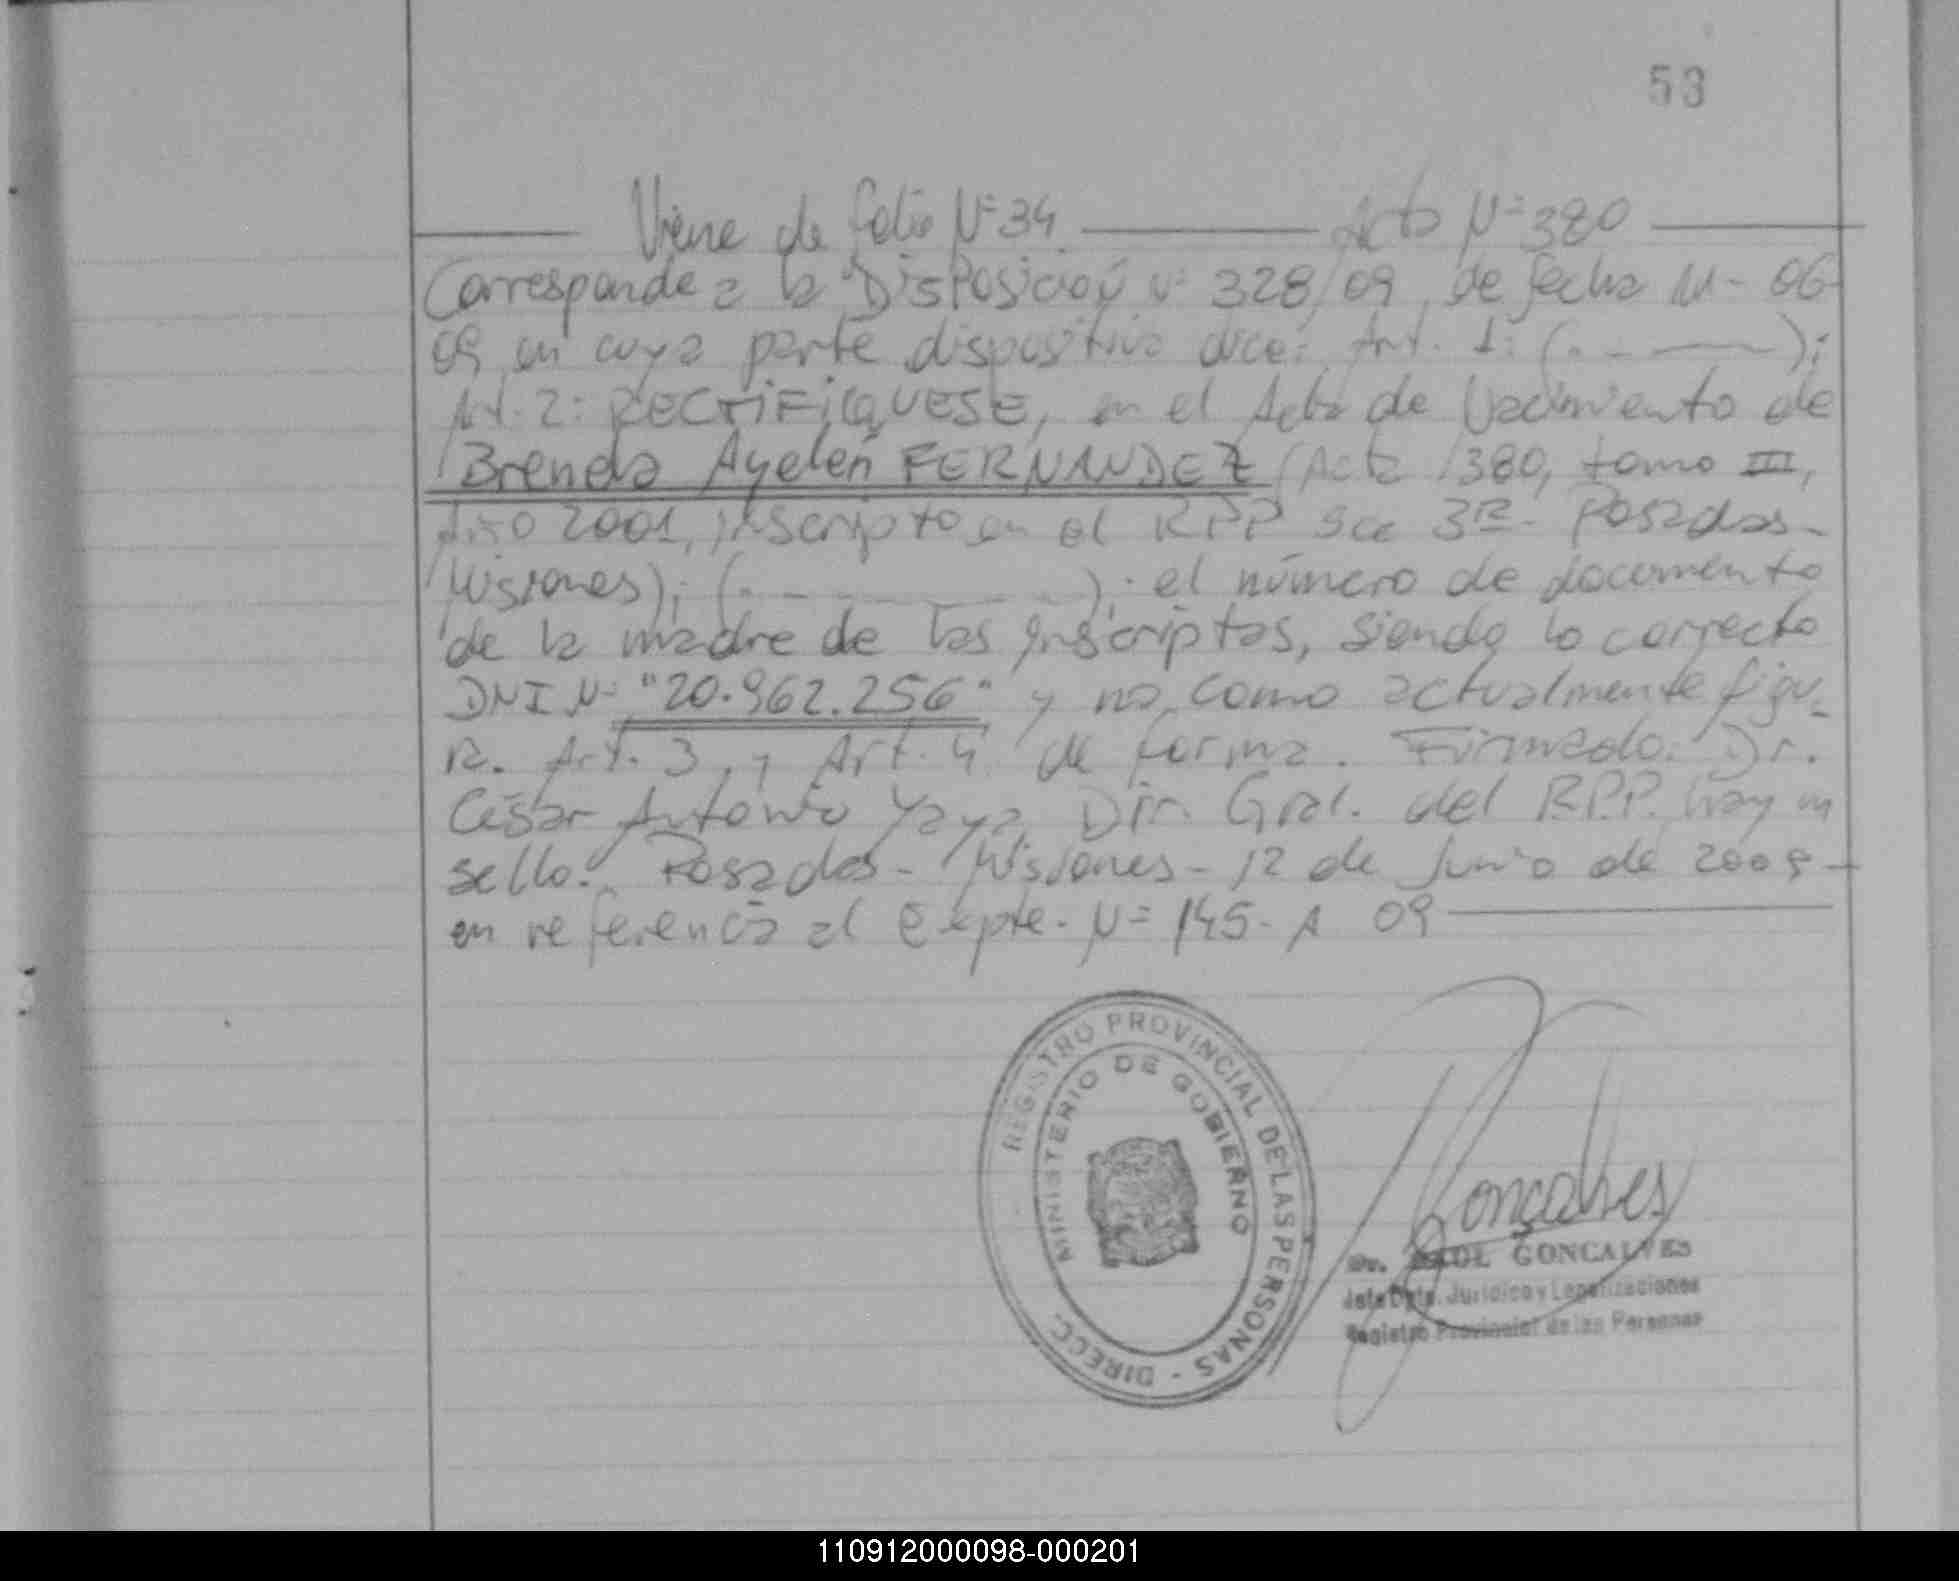 53
Viene de folio Nº 34 Acta Nº 380
Corresponde a la Disposición Nº 328/09, de fecha 11-06-
09 en cuya parte dispositiva dice: Art. 1: (. - ——);
Art. 2: RECTIFIQUESE, en el Acta de Nacimiento de
Brenda Ayelén FERNANDEZ (Acta 380, tomo III,
Año 2001, inscripto en el RPP Sec 3ra - Posadas -
Misiones); (. - - - - - -); el número de documento
de la madre de las inscriptas, siendo lo correcto
DNI Nº "20.962.256" y no como actualmente figu-
ra. Art. 3, y Art. 4 de forma. Firmado: Dr.
César Antonio Yaya, Dir. Gral. del R.P.P. hay un
sello. Posadas - Misiones - 12 de Junio de 2009 -
en referencia al Expte. Nº 145- A 09
REGISTRO PROVINCIAL DE LAS PERSONAS - DIRECC.
MINISTERIO DE GOBIERNO
Gonçalves
Dr. RAUL GONCALVES
Jefe Dpto. Jurídico y Legalizaciones
Registro Provincial de las Personas
110912000098-000201